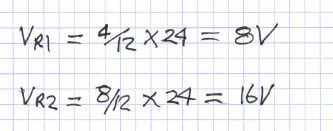 VR1 = 4/12 × 24 = 8V
VR2 = 8/12 × 24 = 16V